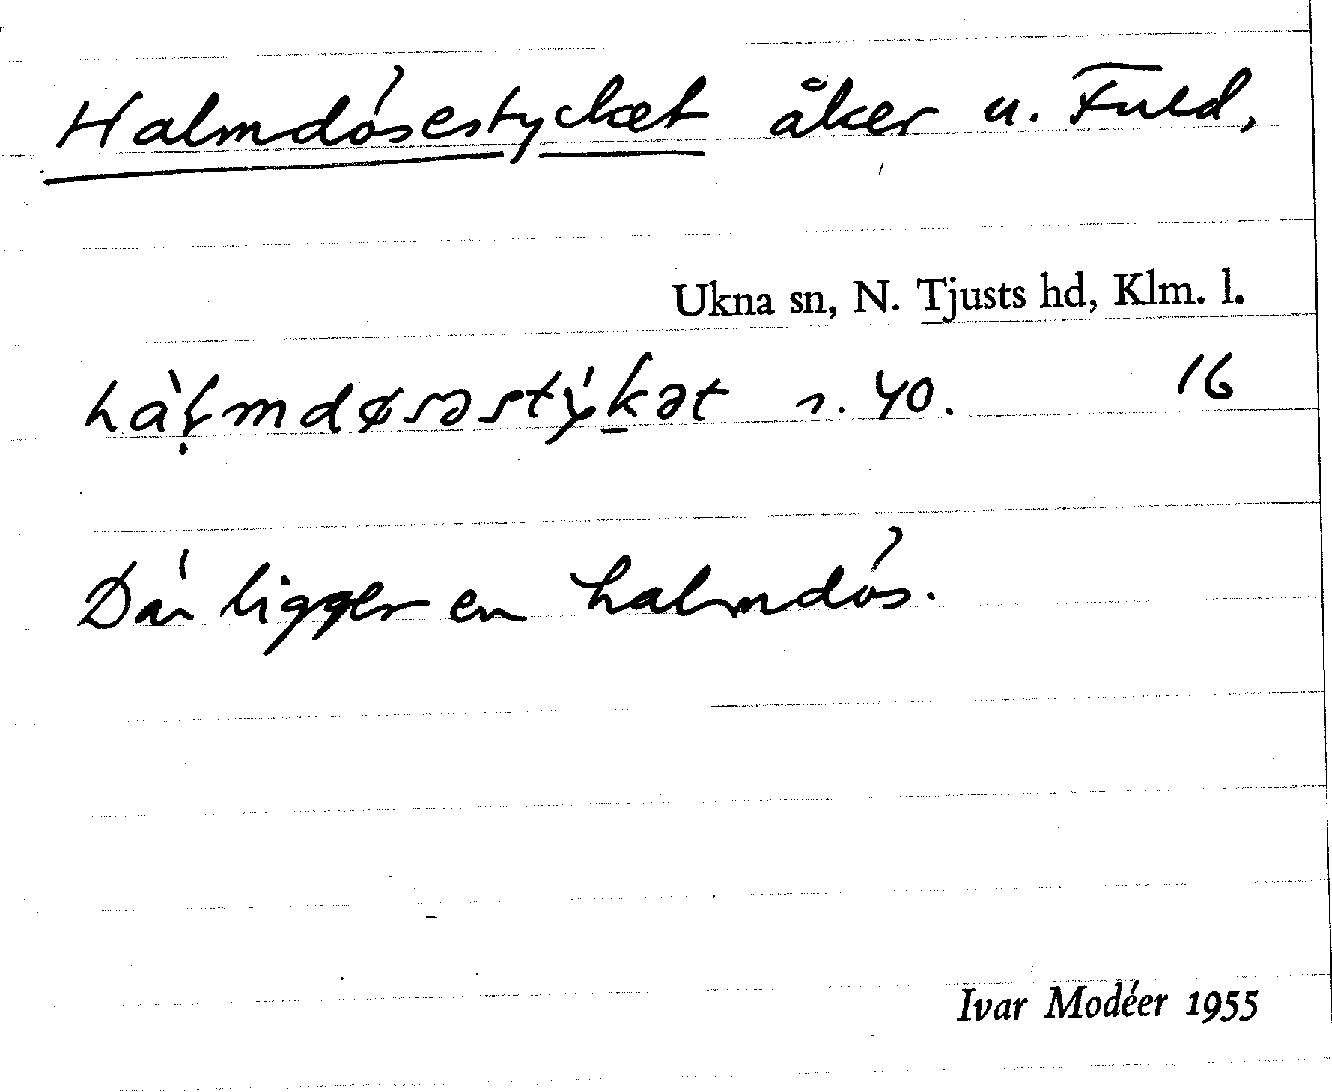 Halmdösestycket åker u. Fuld,
Ukna sn, N. Tjusts hd, Klm. l.
hàḷmdøsəstýkət r. 40. 16
Där ligger en halmdös.
Ivar Modéer 1955